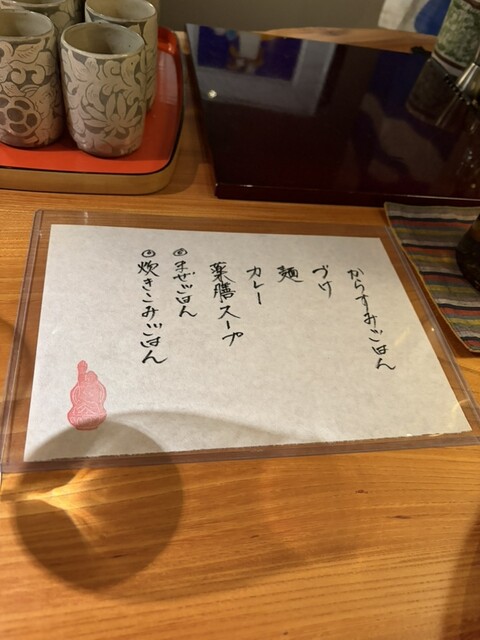 からすみごはん
づけ
麺
カレー
薬膳スープ
◎まぜごはん
◎炊きこみごはん